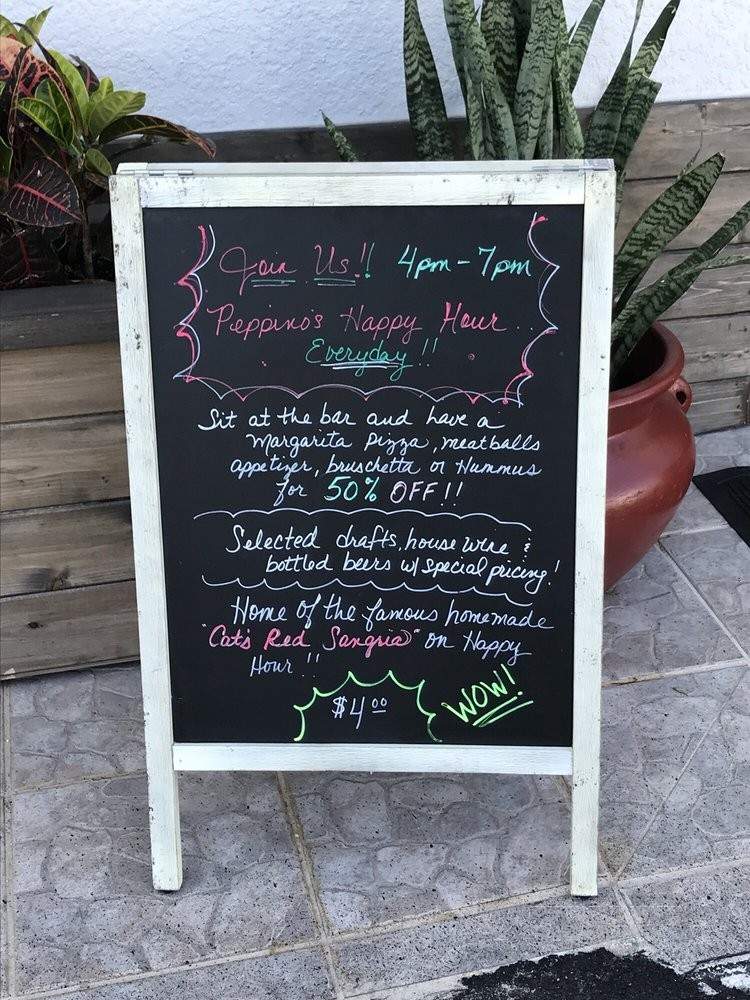 Join Us!! 4pm - 7pm
Peppino's Happy Hour...
Everyday!!
Sit at the bar and have a
Margarita Pizza, meatballs
appetizer, bruschetta or Hummus
for 50% OFF!!
Selected drafts, house wine &
bottled beers w/ special pricing!
Home of the famous homemade
"Cat's Red Sangria" on Happy
Hour!!
$4.00 WOW!